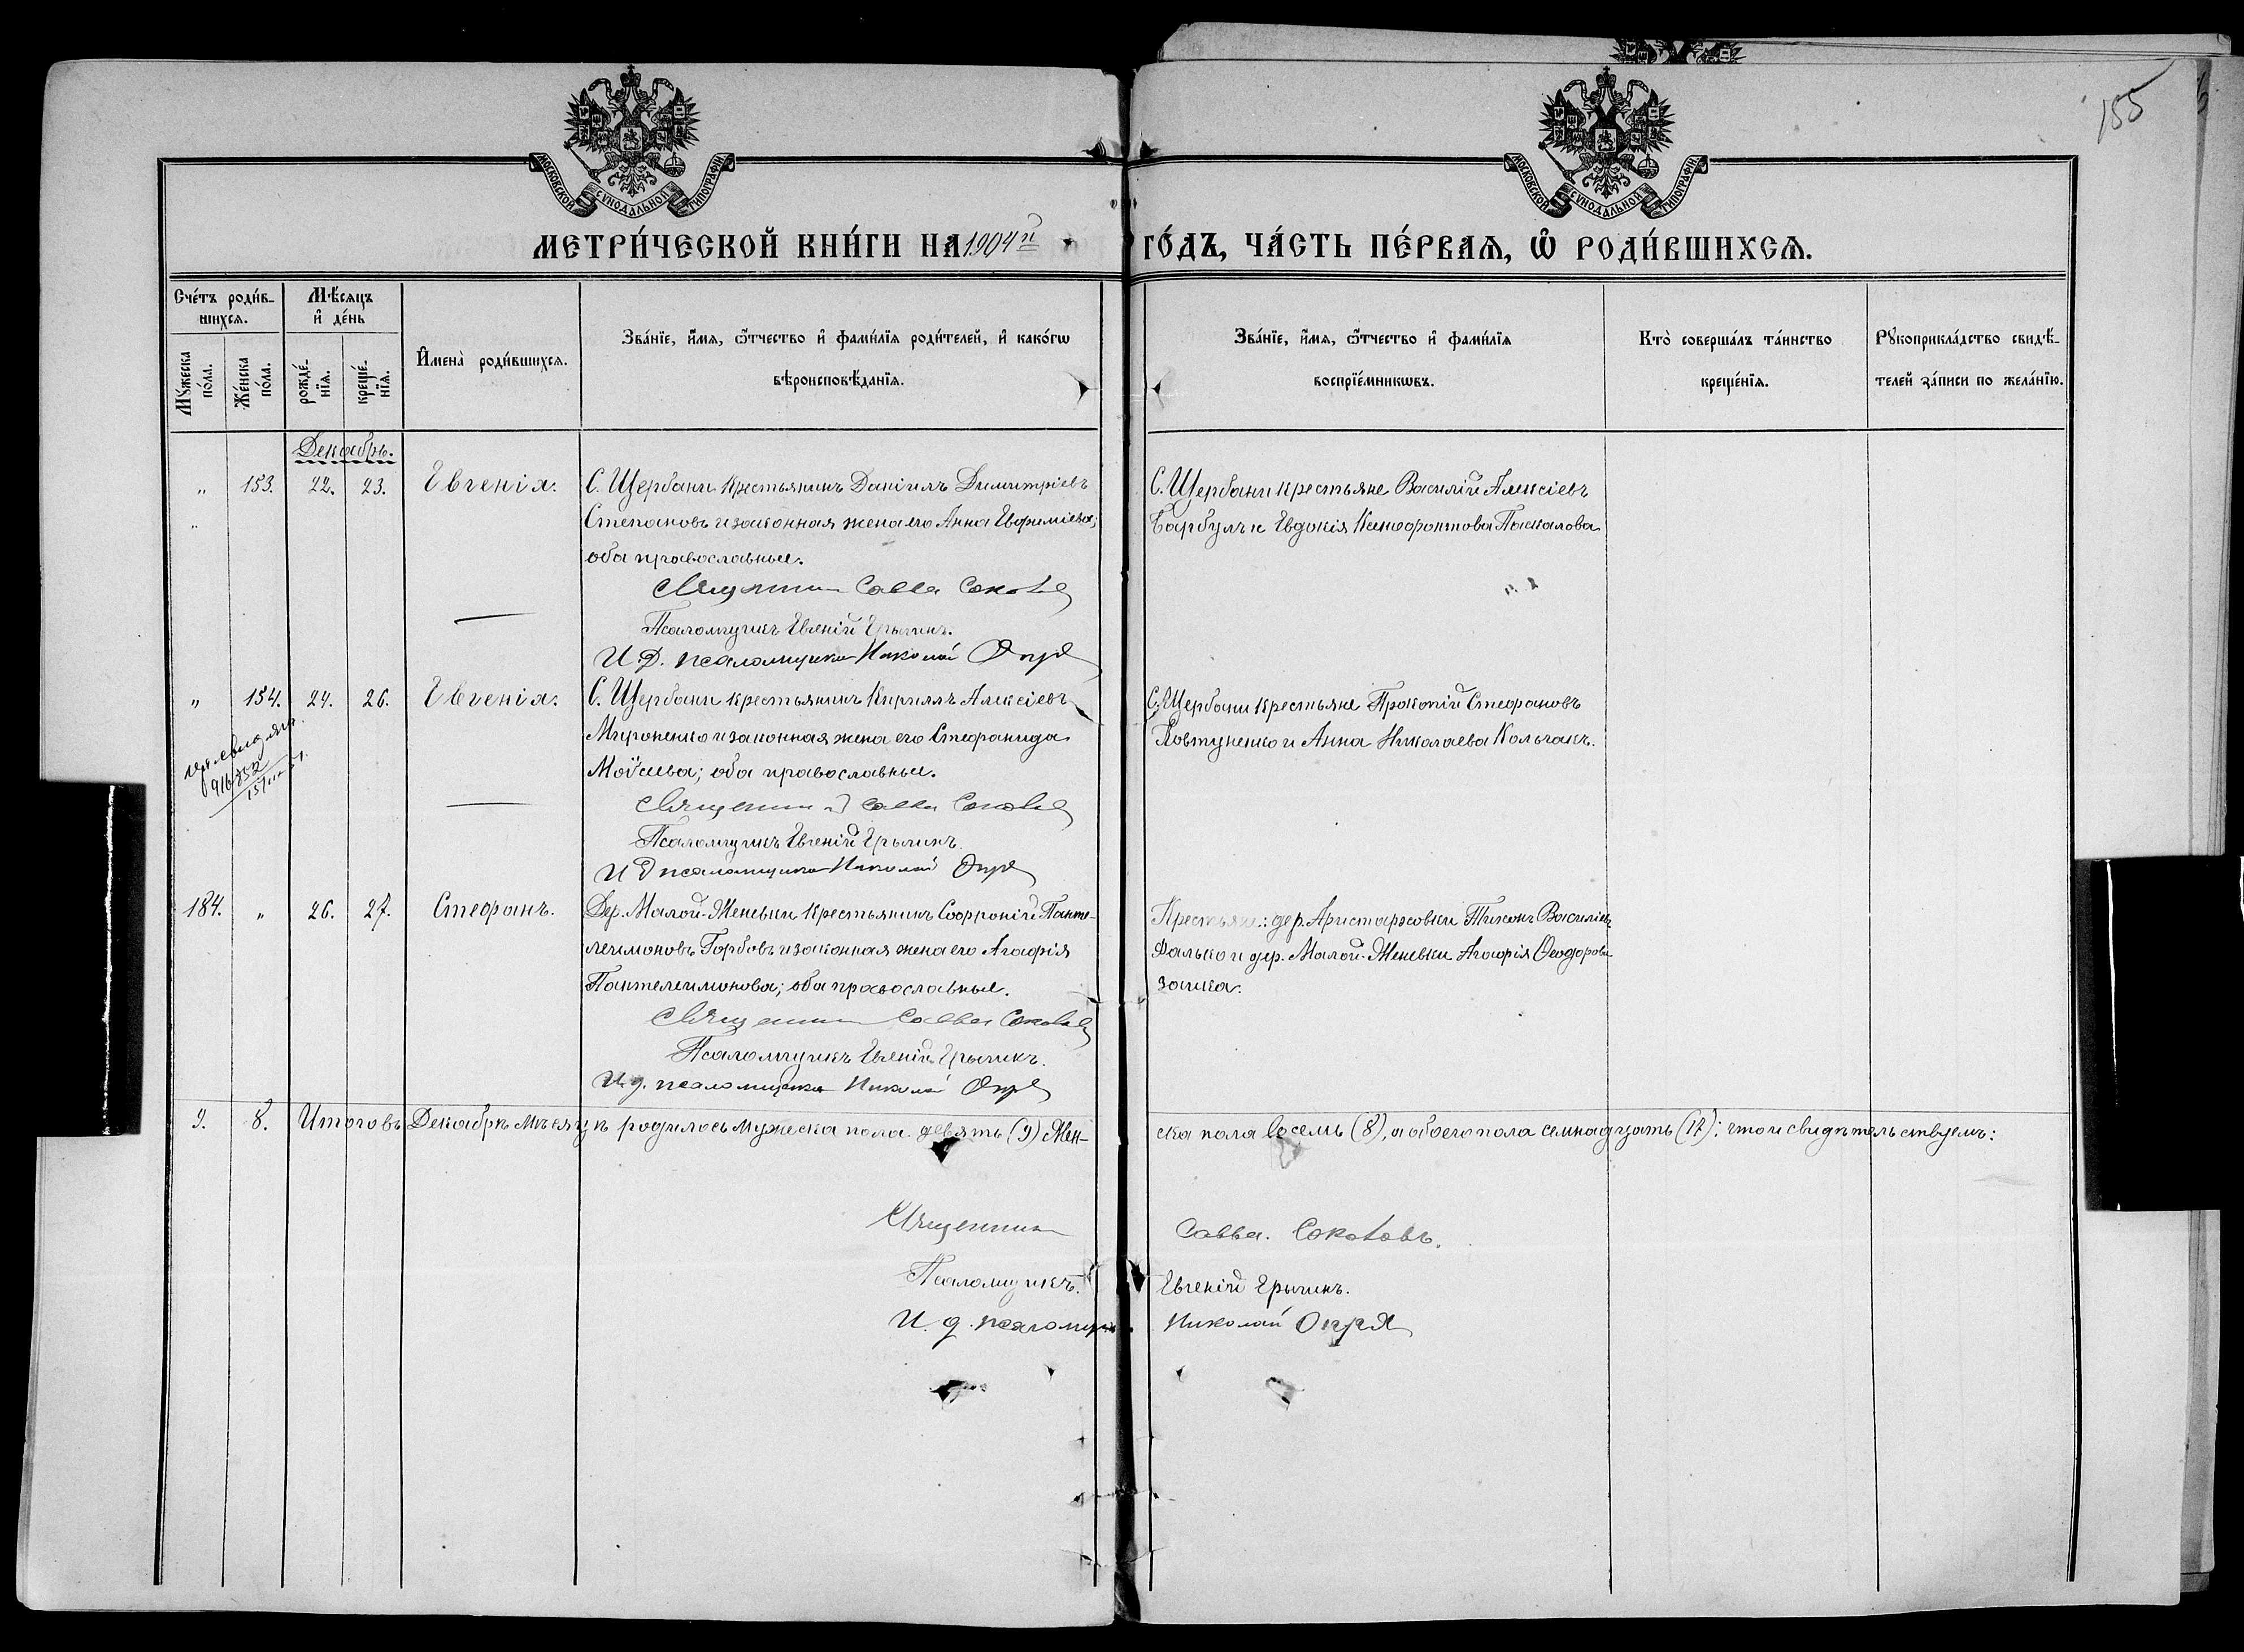 155
МОСКОВСКОЙ СѴНОДАЛЬНОЙ ТИПОГРАФІИ
МОСКОВСКОЙ СѴНОДАЛЬНОЙ ТИПОГРАФІИ
МЕТРИ́ЧЕСКОЙ КНИ́ГИ НА 1904й ГО́ДЪ, ЧА́СТЬ ПЕ́РВАѦ, Ѽ РОДИ́ВШИХСѦ.
Сче́тъ роди́в-
шихсѧ.
Мѣ́сѧцъ
и҆ де́нь
Мꙋ́жеска
по́ла.
Же́нска
по́ла.
рожде́-
нїѧ.
креще́-
нїѧ.
И҆мена̀ роди́вшихсѧ.
Зва́нїе, и҆́мѧ, ѻ҆́тчество и҆ фами́лїѧ роди́телей, и҆ како́гѡ
вѣроисповѣ́данїѧ.
Зва́нїе, и҆́мѧ, ѻ҆́тчество и҆ фами́лїѧ
воспрїе́мникѡвъ.
Кто̀ соверша́лъ та́инство
креще́нїѧ.
Рꙋкоприкла́дство свидѣ́-
телей за́писи по жела́нїю.
Декабрь.
" 153. 22. 23. Евгенія. С. Щербани крестьянинъ Даніилъ Димитріевъ
Степановъ и законная жена его Анна Евфиміева;
оба православные.
С. Щербани крестьяне Василій Алексіевъ
Барбулъ и Евдокія Ксенофонтова Паскалова
Священникъ Савва Соколовъ
Псаломщикъ Евгеній
И. Д. псаломщика Николай Опря
" 154. 24. 26. Евгенія. С. Щербани крестьянинъ Кириллъ Алексіевъ
Мироненко и законная жена его Стефанида
Моѵсіева; оба православные.
С. Щербани крестьяне Прокопій Стефановъ
Ковтуненко и Анна Николаева Кольчакъ.
Священникъ Савва Соколовъ
Псаломщикъ Евгеній
И Д псаломщика Николай Опря
184. " 26. 27. Стефанъ. Дер. Малой-Женевки крестьянинъ Софроній Панте-
леимоновъ Горбовъ и законная жена его Агафія
Пантелеимонова; оба православные.
Крестьяне: дер. Аристарховки Тихонъ Василіевъ
Фалько и дер. Малой-Женевки Агафія Ѳеодорова
Заика.
Священникъ Савва Соколовъ
Псаломщикъ Евгеній
И. д. псаломщика Николай Опря
9. 8. Итого въ Декабрѣ мѣсяцѣ родилось мужеска пола девять (9) Жен-
ска пола восемь (8), а обоего пола семнадцать (17); что и свидѣтельствуемъ:
Священникъ Савва Соколовъ.
Псаломщикъ Евгеній
И. д. псаломщика Николай Опря